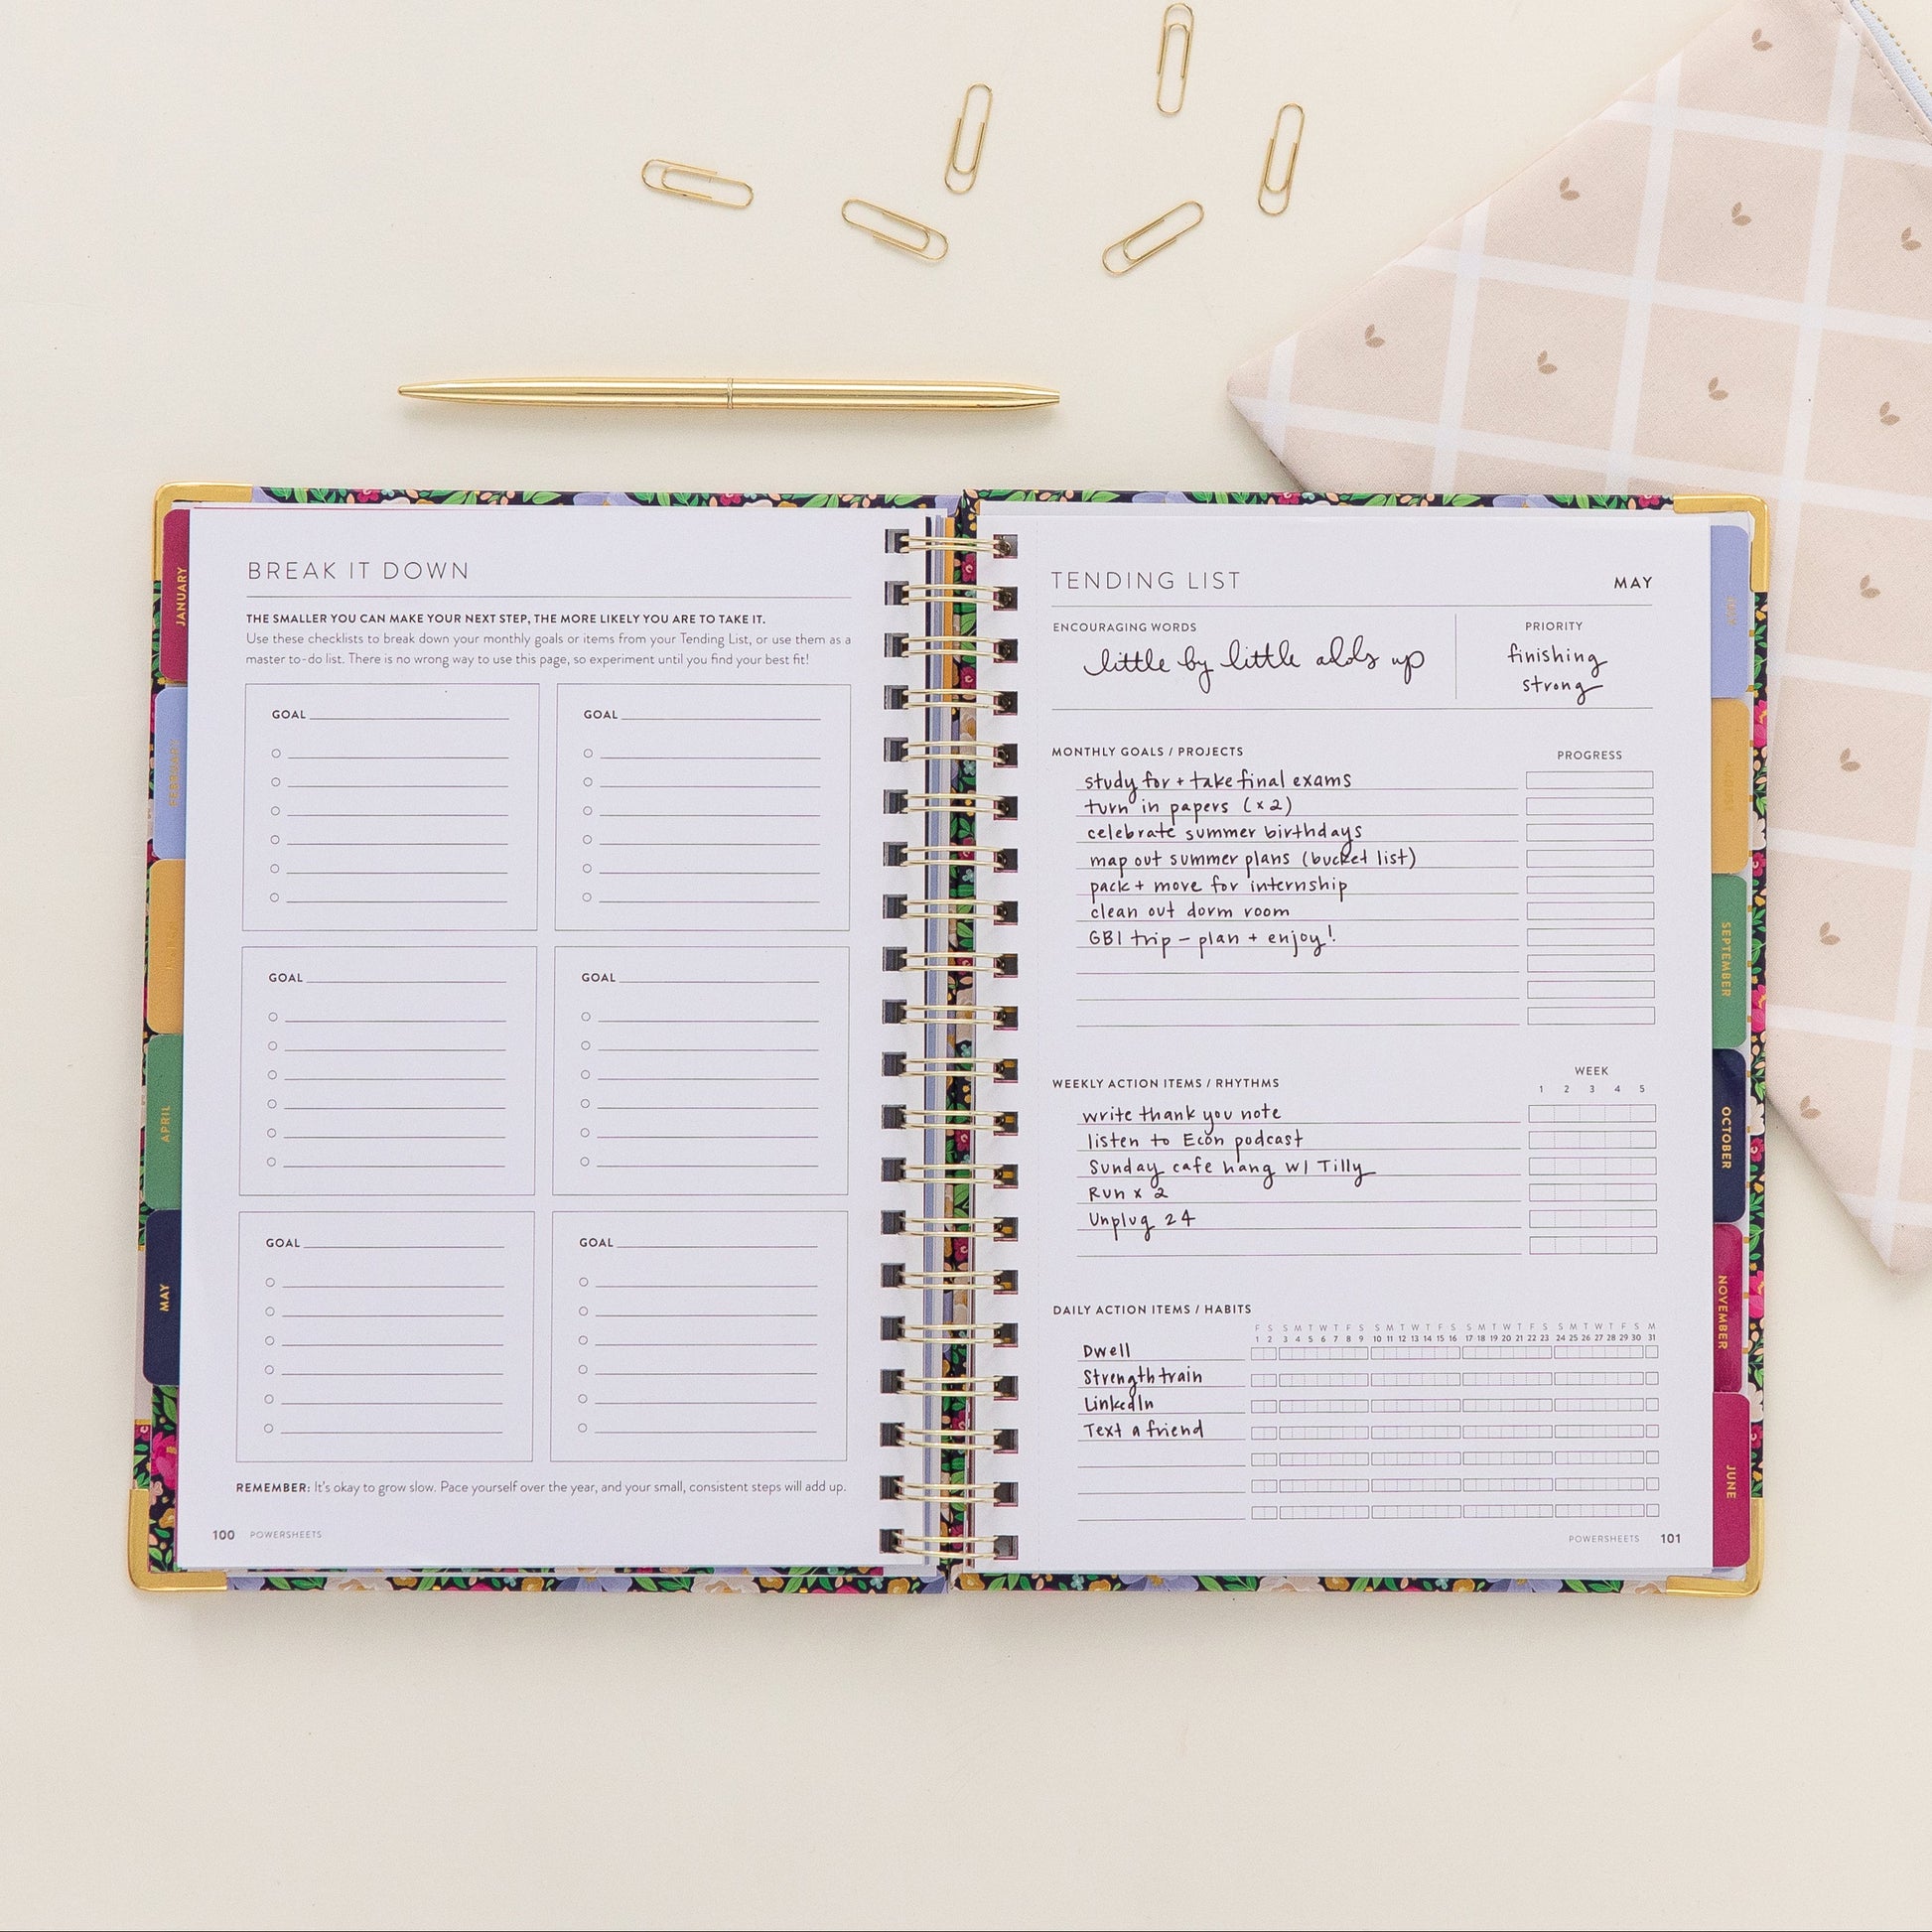 JANUARY
FEBRUARY
APRIL
MAY
BREAK IT DOWN
THE SMALLER YOU CAN MAKE YOUR NEXT STEP, THE MORE LIKELY YOU ARE TO TAKE IT.
Use these checklists to break down your monthly goals or items from your Tending List, or use them as a
master to-do list. There is no wrong way to use this page, so experiment until you find your best fit!
GOAL GOAL
GOAL GOAL
GOAL GOAL
REMEMBER: It's okay to grow slow. Pace yourself over the year, and your small, consistent steps will add up.
100 POWERSHEETS
TENDING LIST MAY
ENCOURAGING WORDS
little by little adds up
PRIORITY
finishing
strong
MONTHLY GOALS / PROJECTS PROGRESS
study for + take final exams
turn in papers (x2)
celebrate summer birthdays
map out summer plans (bucket list)
pack + move for internship
clean out dorm room
GBI trip - plan + enjoy!
WEEKLY ACTION ITEMS / RHYTHMS WEEK
1 2 3 4 5
write thank you note
listen to Econ podcast
Sunday cafe hang w/ Tilly
Run x 2
Unplug 24
DAILY ACTION ITEMS / HABITS
F S S M T W T F S S M T W T F S S M T W T F S S M T W T F S M
1 2 3 4 5 6 7 8 9 10 11 12 13 14 15 16 17 18 19 20 21 22 23 24 25 26 27 28 29 30 31
Dwell
Strength train
LinkedIn
Text a friend
POWERSHEETS 101
AUGUST
SEPTEMBER
OCTOBER
NOVEMBER
JUNE